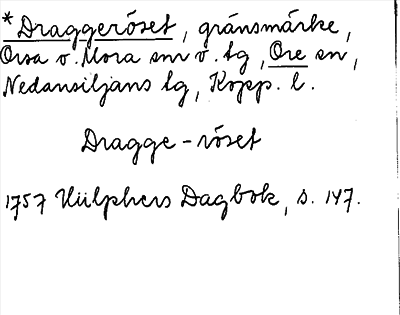 *Draggeröset, gränsmärke,
Orsa o. Mora snr o. tg, Ore sn,
Nedansiljans tg, Kopp. l.
Dragge-röset
1757 Hülphers Dagbok, s. 147.